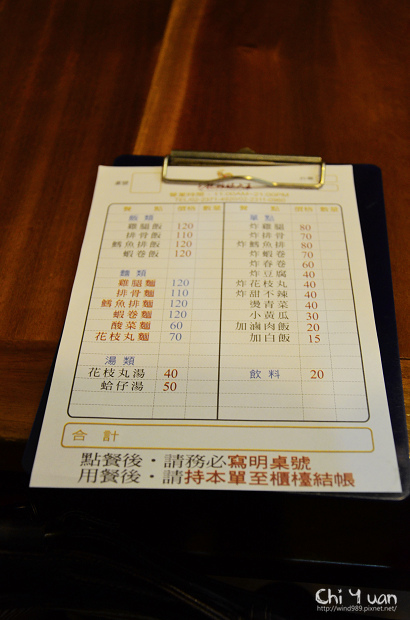 餐點 價格 數量
飯類
雞腿飯 120
排骨飯 110
鱈魚排飯 120
蝦卷飯 120
麵類
雞腿麵 120
排骨麵 110
鱈魚麵 120
蝦卷麵 120
酸菜麵 60
花枝丸麵 70
湯類
花枝丸湯 40
蛤仔湯 50
餐點 價格 數量
單點
炸雞腿 80
炸排骨 70
炸鱈魚排 80
炸蝦卷 70
炸春卷 60
炸豆腐 40
炸花枝丸 40
炸甜不辣 40
燙青菜 40
小黃瓜 30
加滷肉飯 20
加白飯 15
飲料 20
合計
點餐後・請務必寫明桌號
用餐後・請持本單至櫃檯結帳
Chi Yuan
http://wind989.pixnet.net/